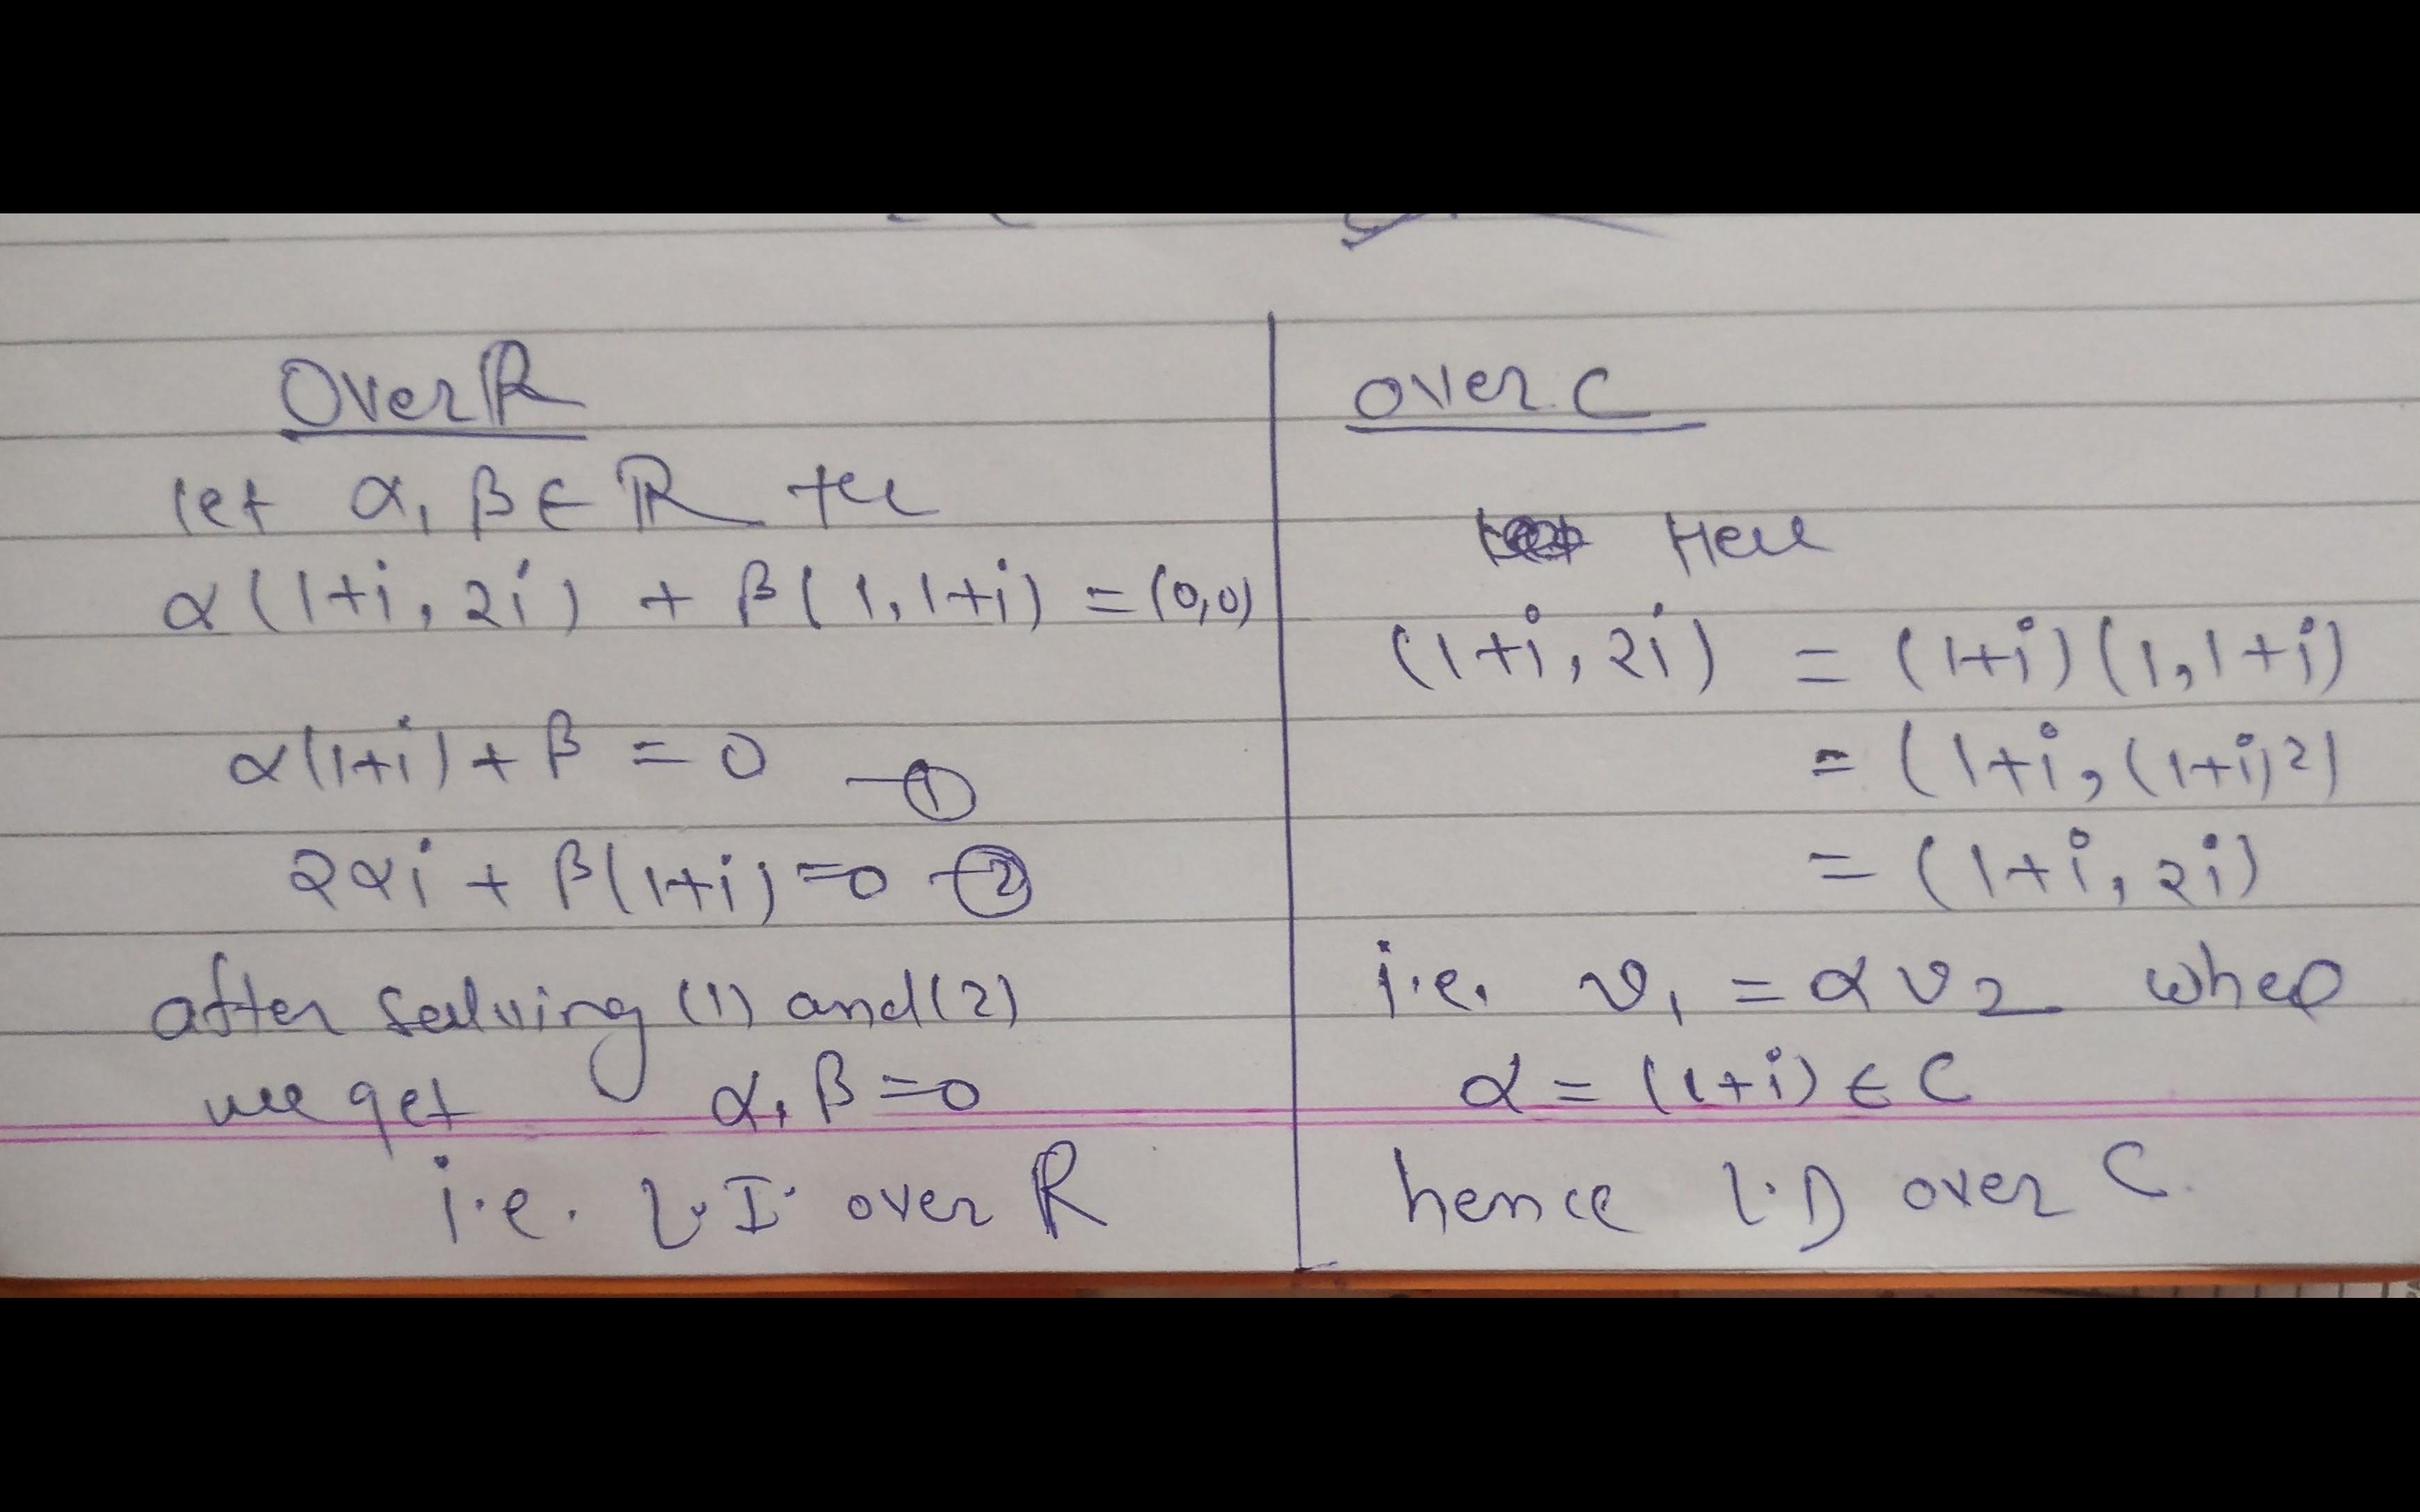 Over R
let α, β ∈ R the
α(1+i, 2i) + β(1, 1+i) = (0,0)
α(1+i) + β = 0 —①
2αi + β(1+i) = 0 —②
after solving (1) and (2)
we get α, β = 0
i.e. L.I. over R
over C
Here
(1+i, 2i) = (1+i)(1, 1+i)
= (1+i, (1+i)²)
= (1+i, 2i)
i.e. v₁ = αv₂ where
α = (1+i) ∈ C
hence L.D over C.